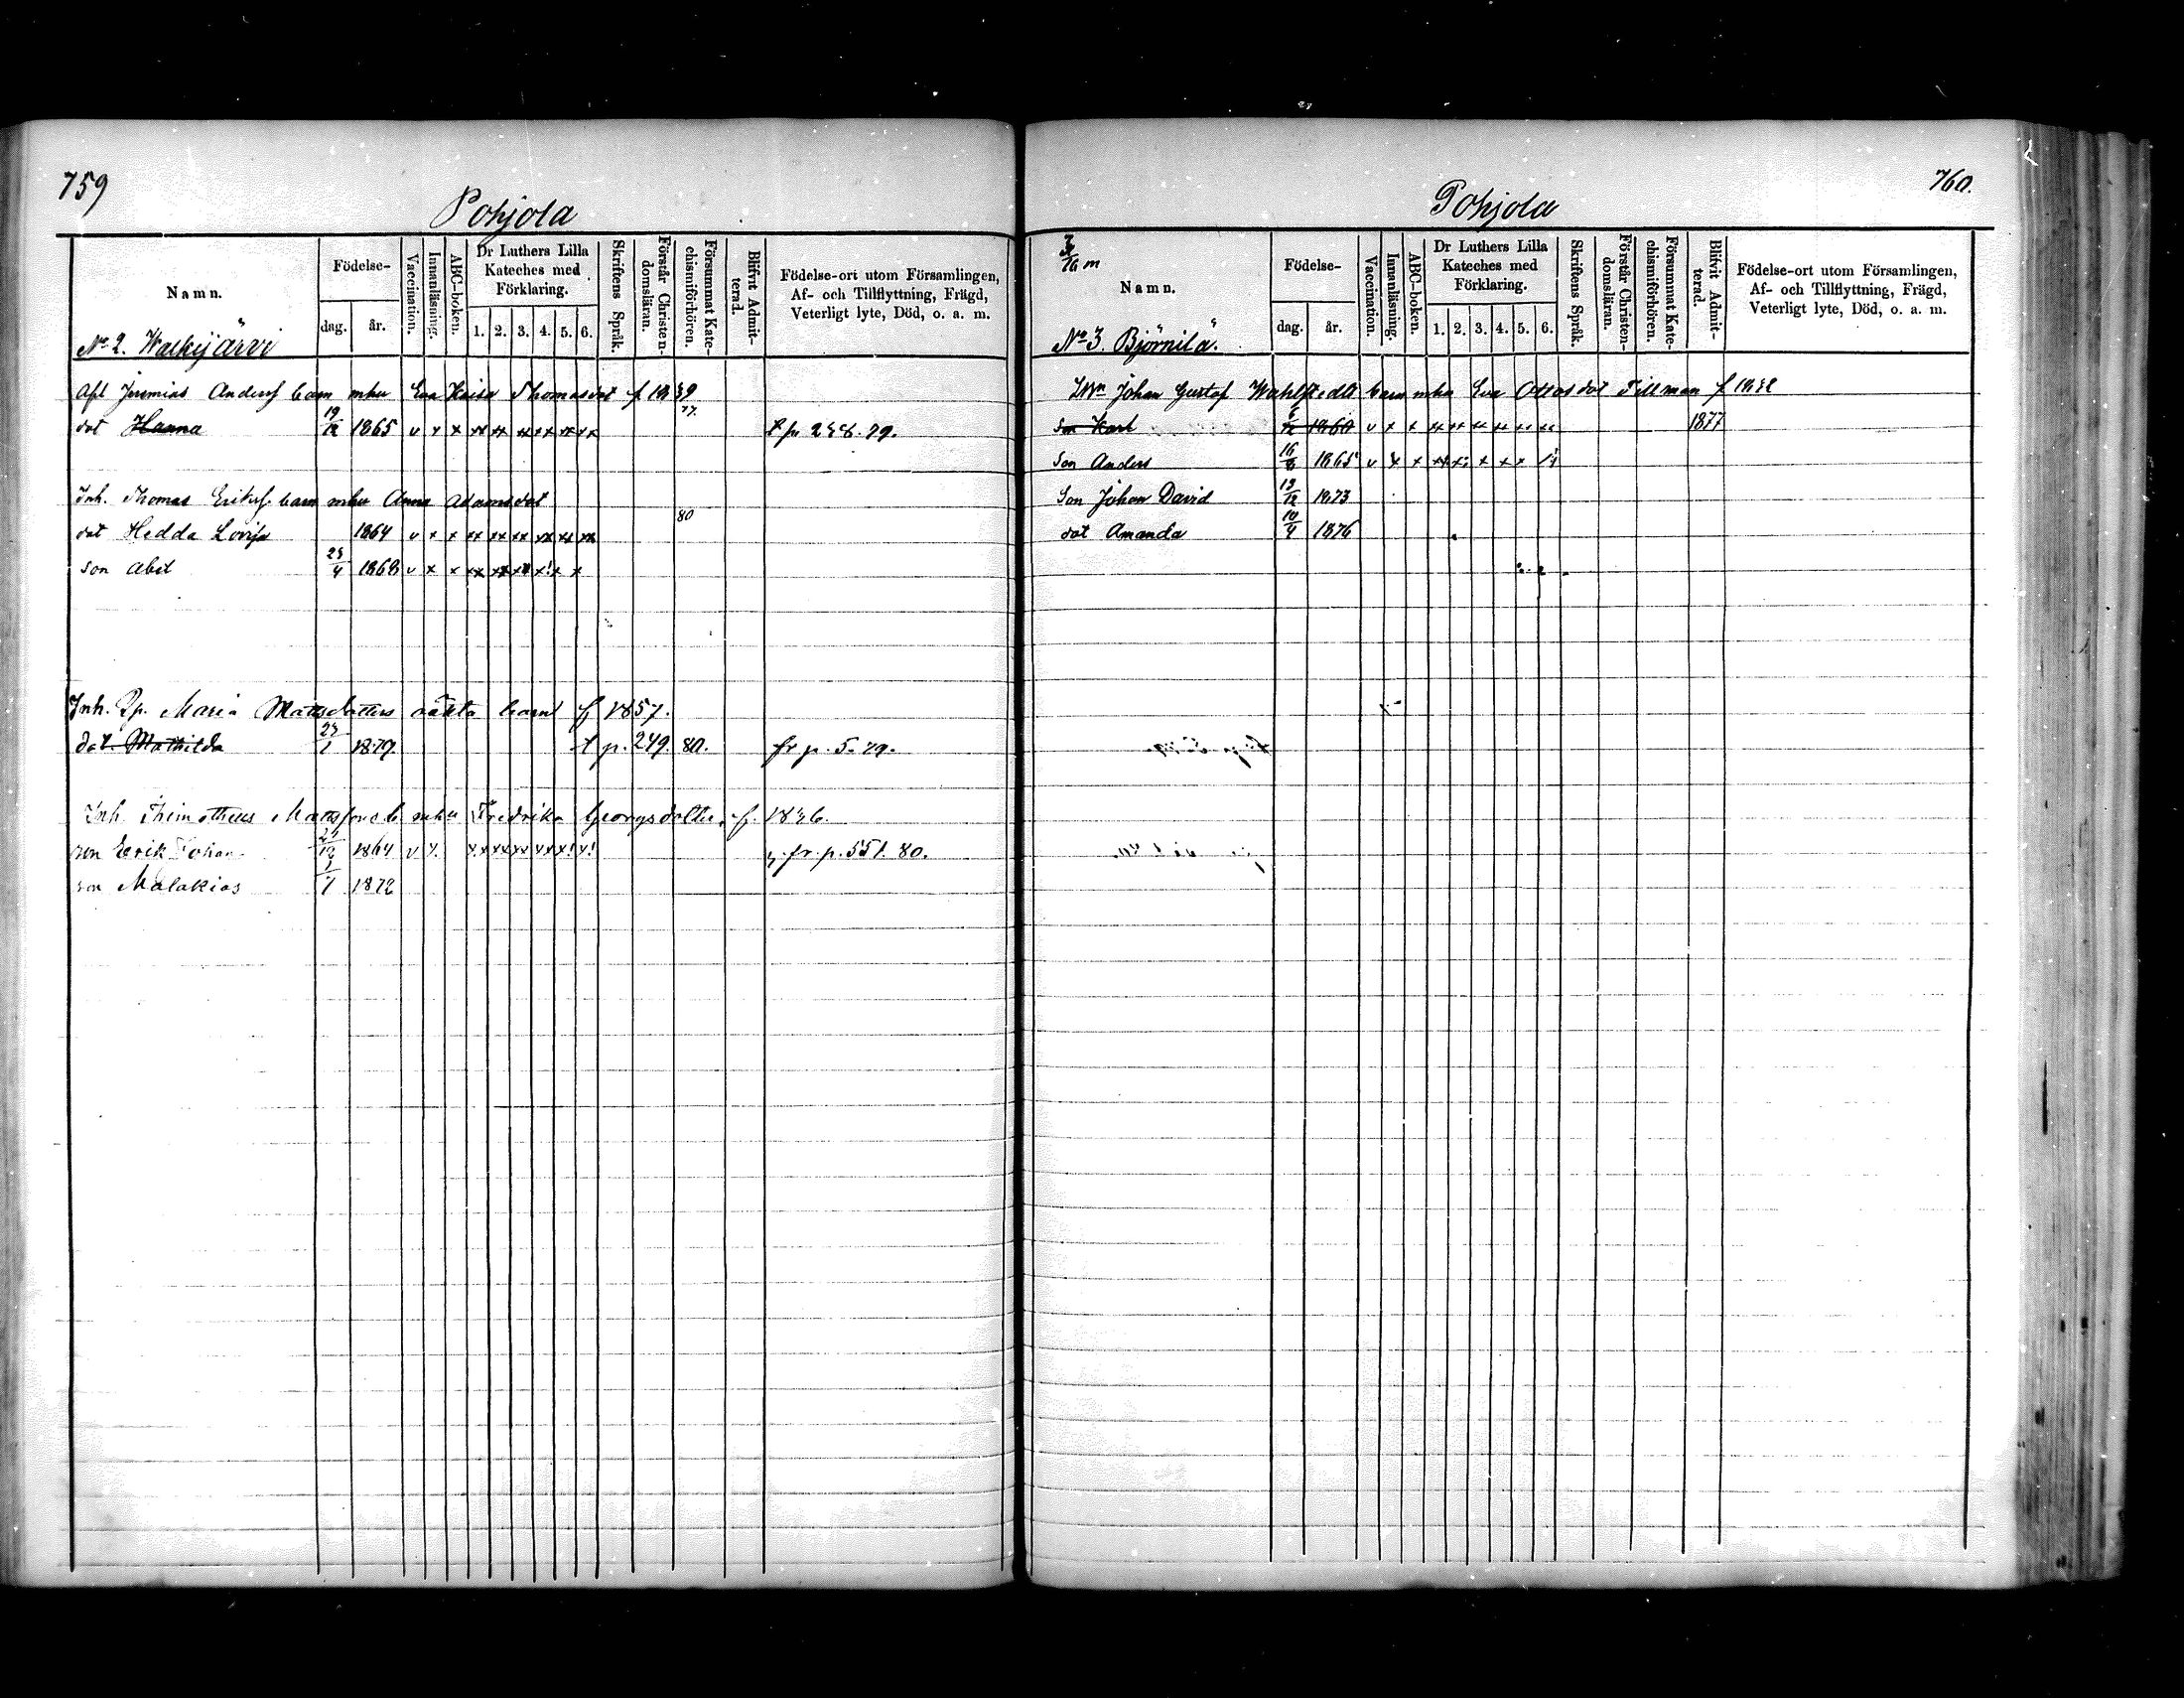 759
Pohjola
Namn.
Födelse-
dag.
år.
Vaccination.
Innanläsning.
ABC-boken.
Dr Luthers Lilla
Kateches med
Förklaring.
1. 2. 3. 4. 5. 6.
Skriftens Språk.
Förstår Christen-
domsläran.
Försummat Kate-
chismiförhören.
Blifvit Admit-
terad.
Födelse-ort utom Församlingen,
Af- och Tillflyttning, Frägd,
Veterligt lyte, Död, o. a. m.
No 2. Walkijärvi
Jeremias Anders barn mhu Eva Kaisa Thomasdot f. 1839
dot Hanna 19/12 1865 v x x xx xx xx xx xx xx 77 79.
Inh. Thomas Eriks barn mhu Anna Adamsdot
dot Hedda Lovisa 1864 v x x xx xx xx xx xx xx 80
son Abel 23/4 1868 v x x xx xx xx x! x x
Inh. Maria Mattsdotters oäkta barn f 1857.
dot. Mathilda 23/1 1879. t p. 249. 80. fr p. 5. 79.
Inh. Thimotheus Mattsson b. mhu Fredrika Georgsdotter f. 1826.
son Erik Johan 1864 fr. p. 551. 80.
son Malakias 1/7 1872
760.
Pohjola
7/76 m
Namn.
Födelse-
dag.
år.
Vaccination.
Innanläsning.
ABC-boken.
Dr Luthers Lilla
Kateches med
Förklaring.
1. 2. 3. 4. 5. 6.
Skriftens Språk.
Förstår Christen-
domsläran.
Försummat Kate-
chismiförhören.
Blifvit Admit-
terad.
Födelse-ort utom Församlingen,
Af- och Tillflyttning, Frägd,
Veterligt lyte, Död, o. a. m.
No 3. Björnilä.
Johan Gustaf Wahlstedts barn mhu Eva Ottosdot Tillman f 1832
son Karl 6/12 1860 v x x xx xx xx xx xx xx 1877
son Anders 16/8 1865 v x x
son Johan David 13/12 1873
dot Amanda 10/4 1876